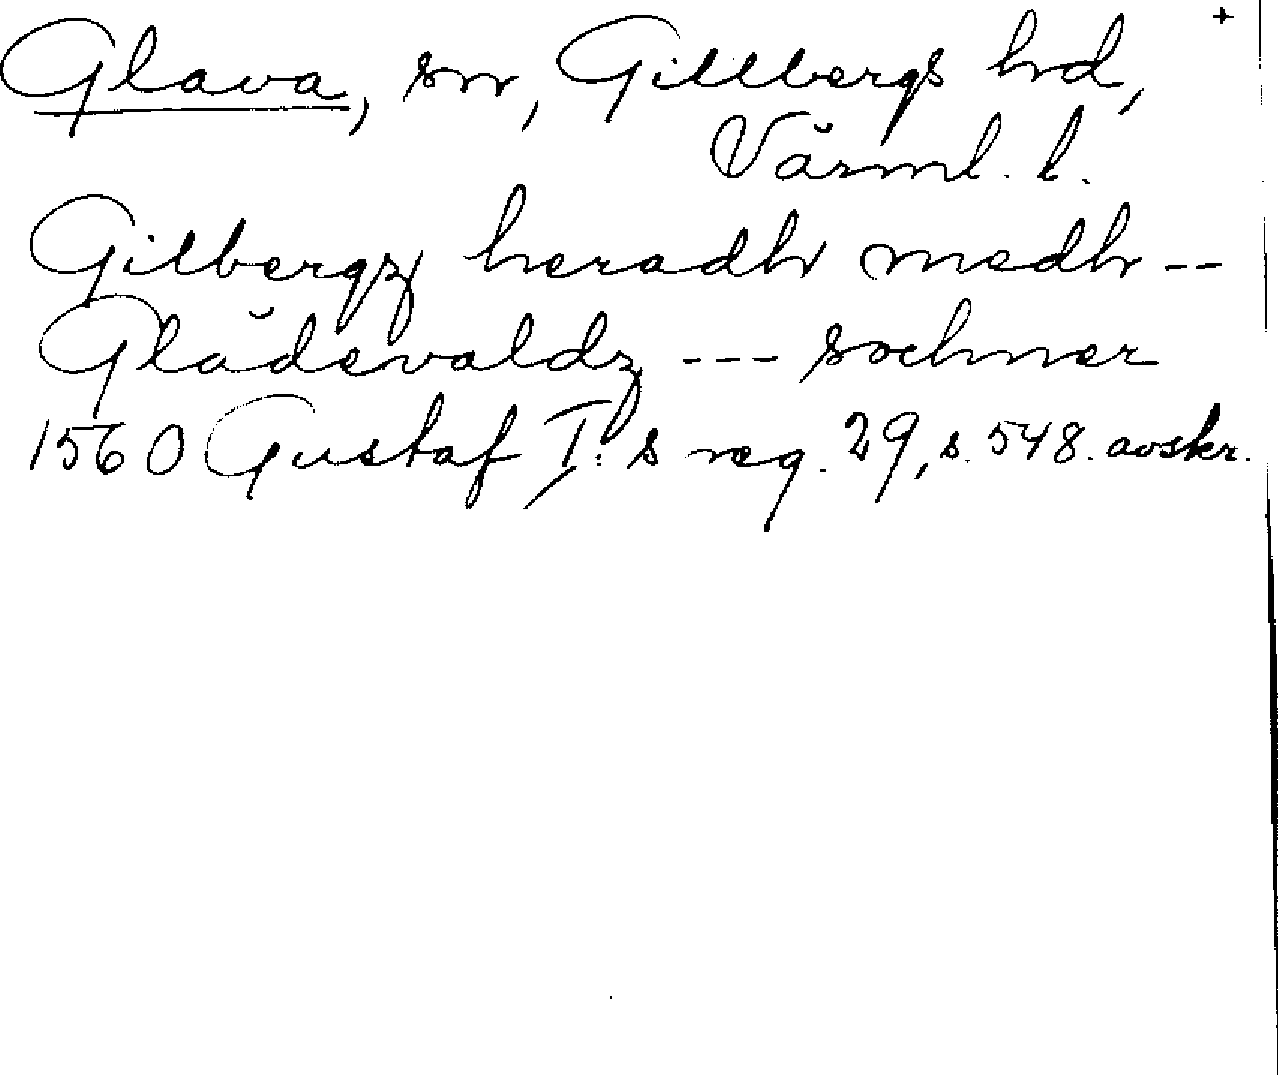 Glava, sn, Gillbergs hd, +
Värml. l.
Gilbergz heradh medh --
Glädevaldz --- sochner
1560 Gustaf I:s reg. 29, s. 548. avskr.